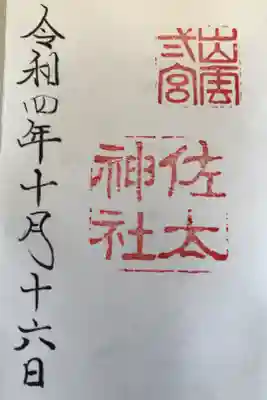 出雲
弍宮
佐太
神社
令和四年十月十六日